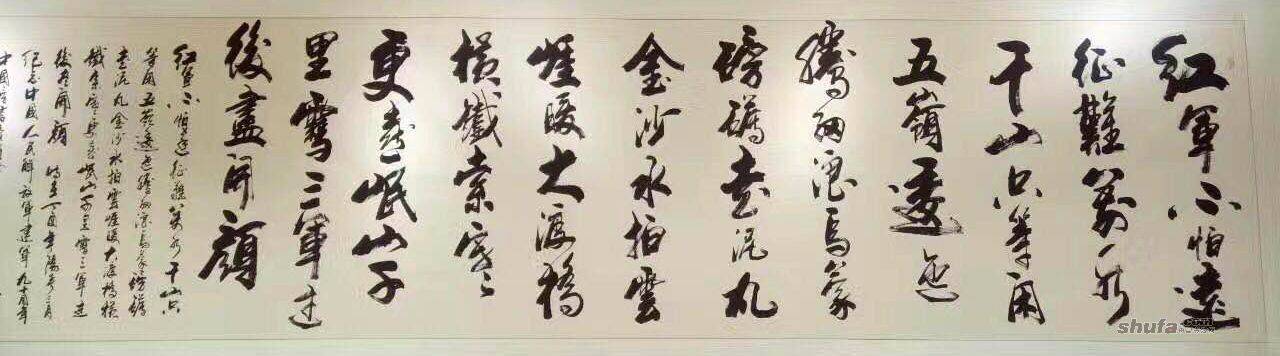 紅軍不怕遠
征難萬水
千山只等閑
五嶺逶迤
騰細浪烏蒙
磅礴走泥丸
金沙水拍雲
崖暖大渡橋
橫鐵索寒
更喜岷山千
里雪三軍過
後盡開顏
紅軍不怕遠征難萬水千山只
等閑五嶺逶迤騰細浪烏蒙磅礴
走泥丸金沙水拍雲崖暖大渡橋橫
鐵索寒更喜岷山千里雪三軍過
後盡開顏 時在丁酉年陽春三月
紀念中國人民解放軍建軍九十周年
中國
shufa